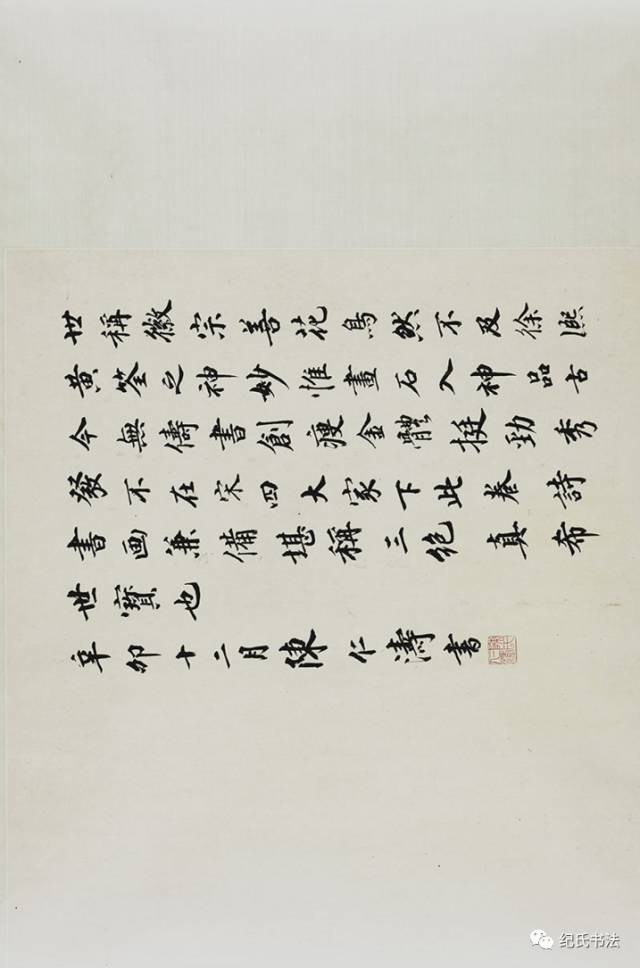 世稱徽宗善花鳥然不及徐熙
黃筌之神妙惟畫石入神品古
今無儔書創瘦金體挺勁秀
發不在宋四大家下此卷詩
書画兼備堪稱三絶真希
世寶也
辛卯十二月陳仁濤書
纪氏书法